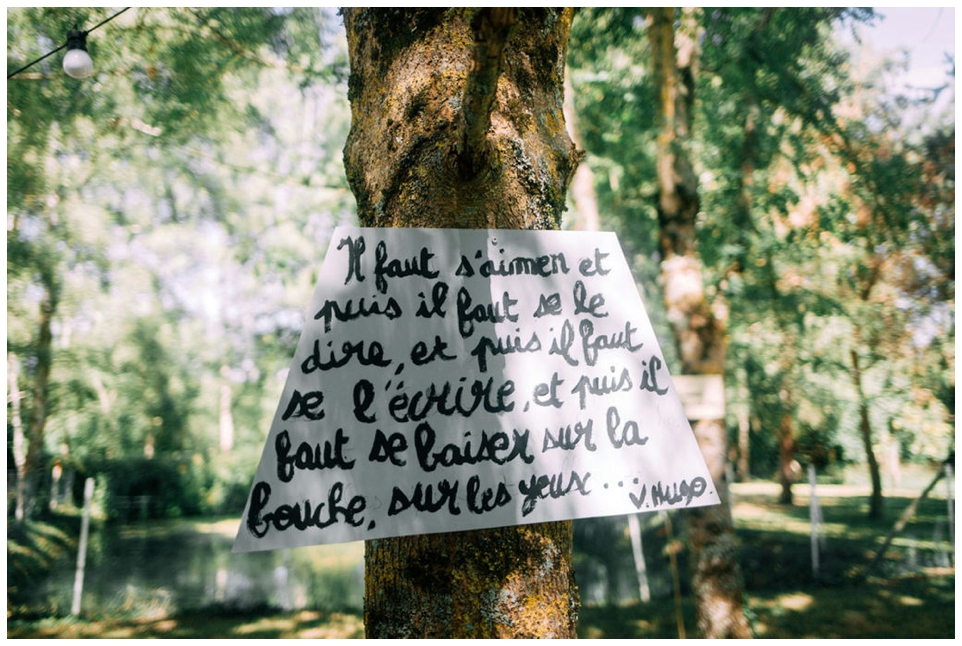 Il faut s'aimer et
puis il faut se le
dire, et puis il faut
se l'écrire, et puis il
faut se baiser sur la
bouche, sur les yeux ...
V. Hugo.